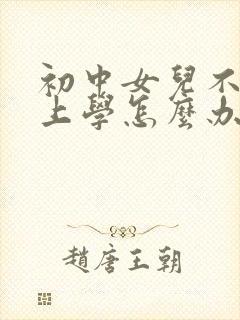 初中女兒不
上學怎麼办
趙唐王朝